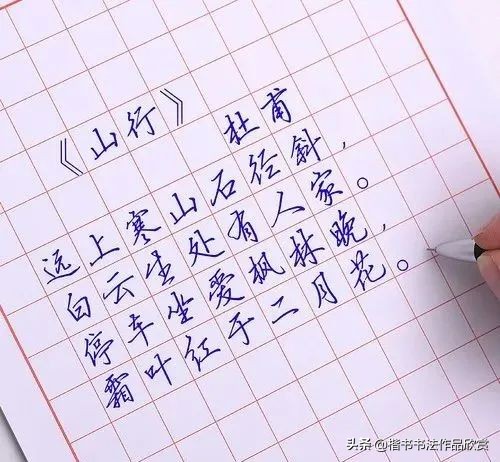 《山行》 杜甫
远上寒山石径斜，
白云生处有人家。
停车坐爱枫林晚，
霜叶红于二月花。
头条@楷书书法作品欣赏